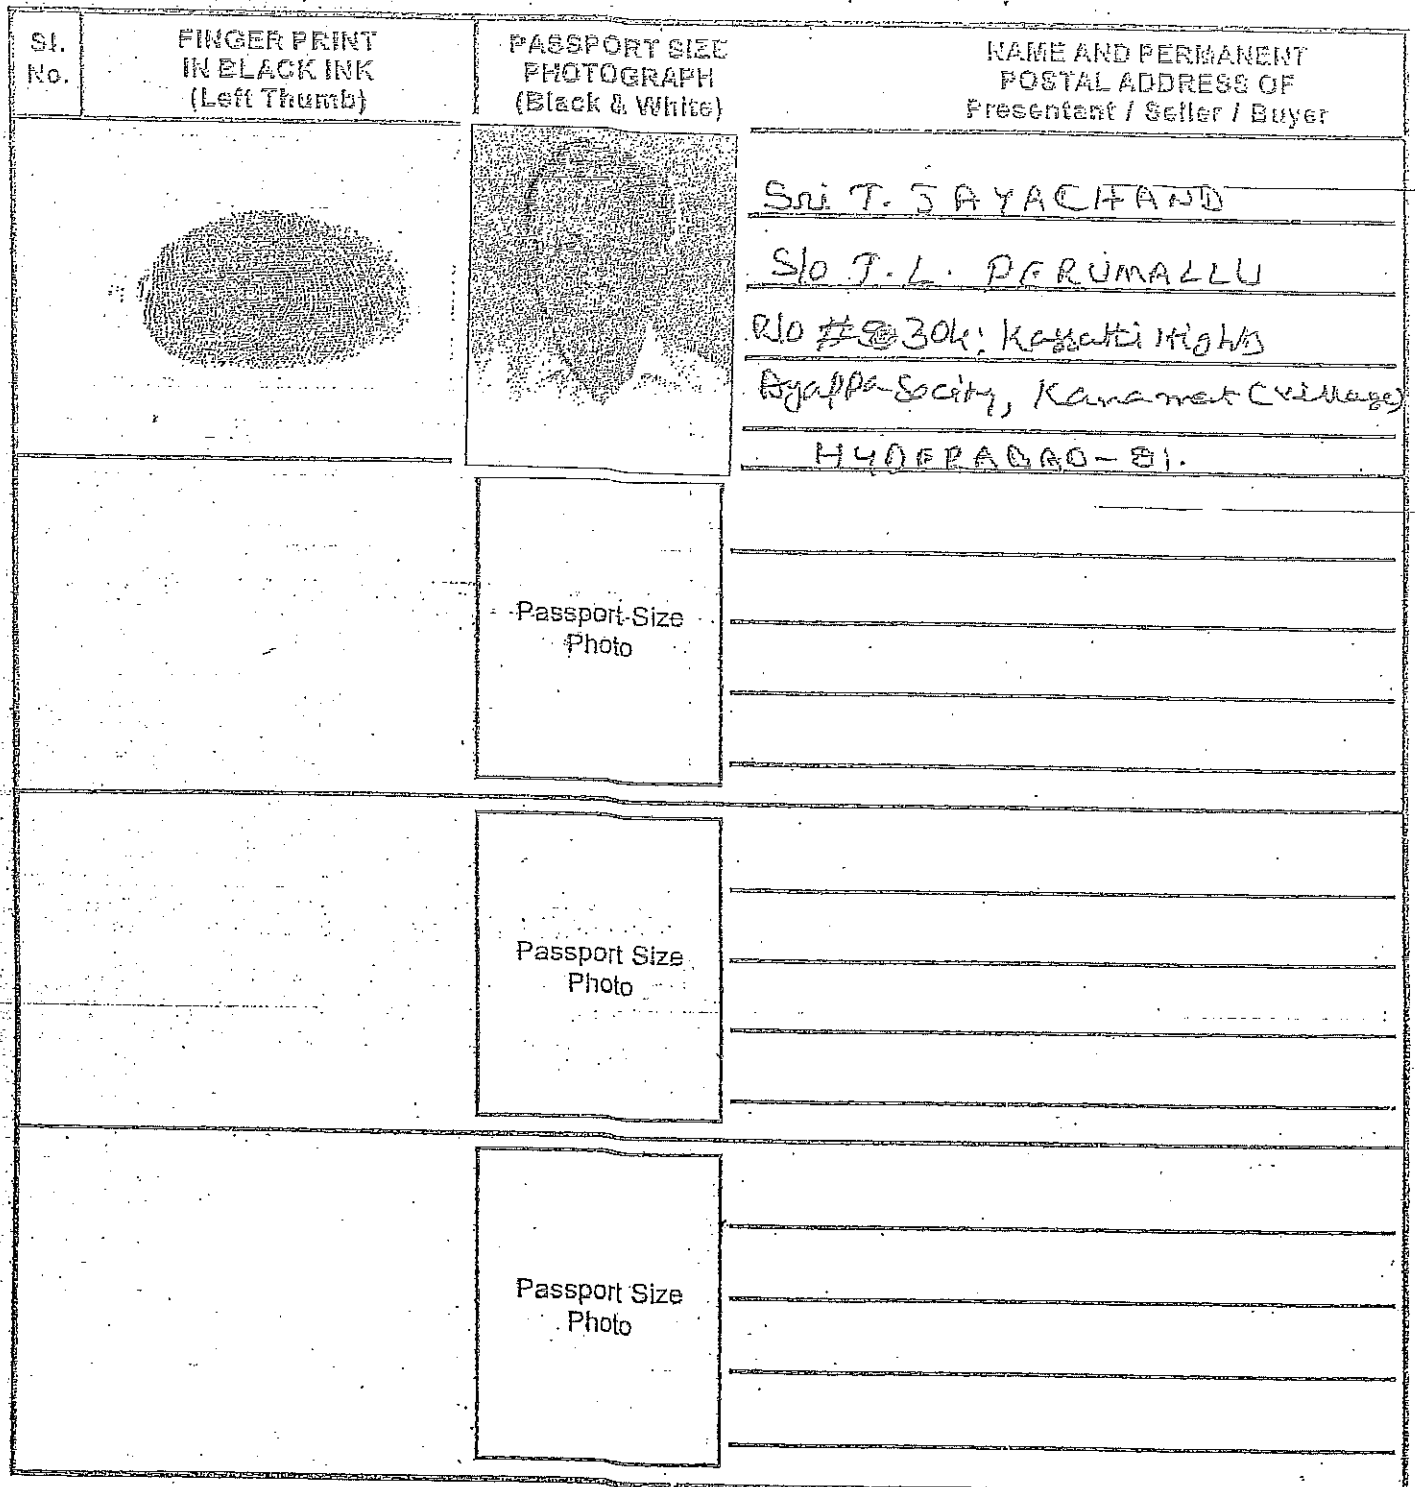 Sl.
No.
FINGER PRINT
IN BLACK INK
(Left Thumb)
PASSPORT SIZE
PHOTOGRAPH
(Black & White)
NAME AND PERMANENT
POSTAL ADDRESS OF
Presentant / Seller / Buyer
Sri T. JAYACHAND
S/o T. L. PERUMALLU
R/o #
Ayappa Socity, Kanamet (village)
HYDERABAD-81.
Passport Size
Photo
Passport Size
Photo
Passport Size
Photo